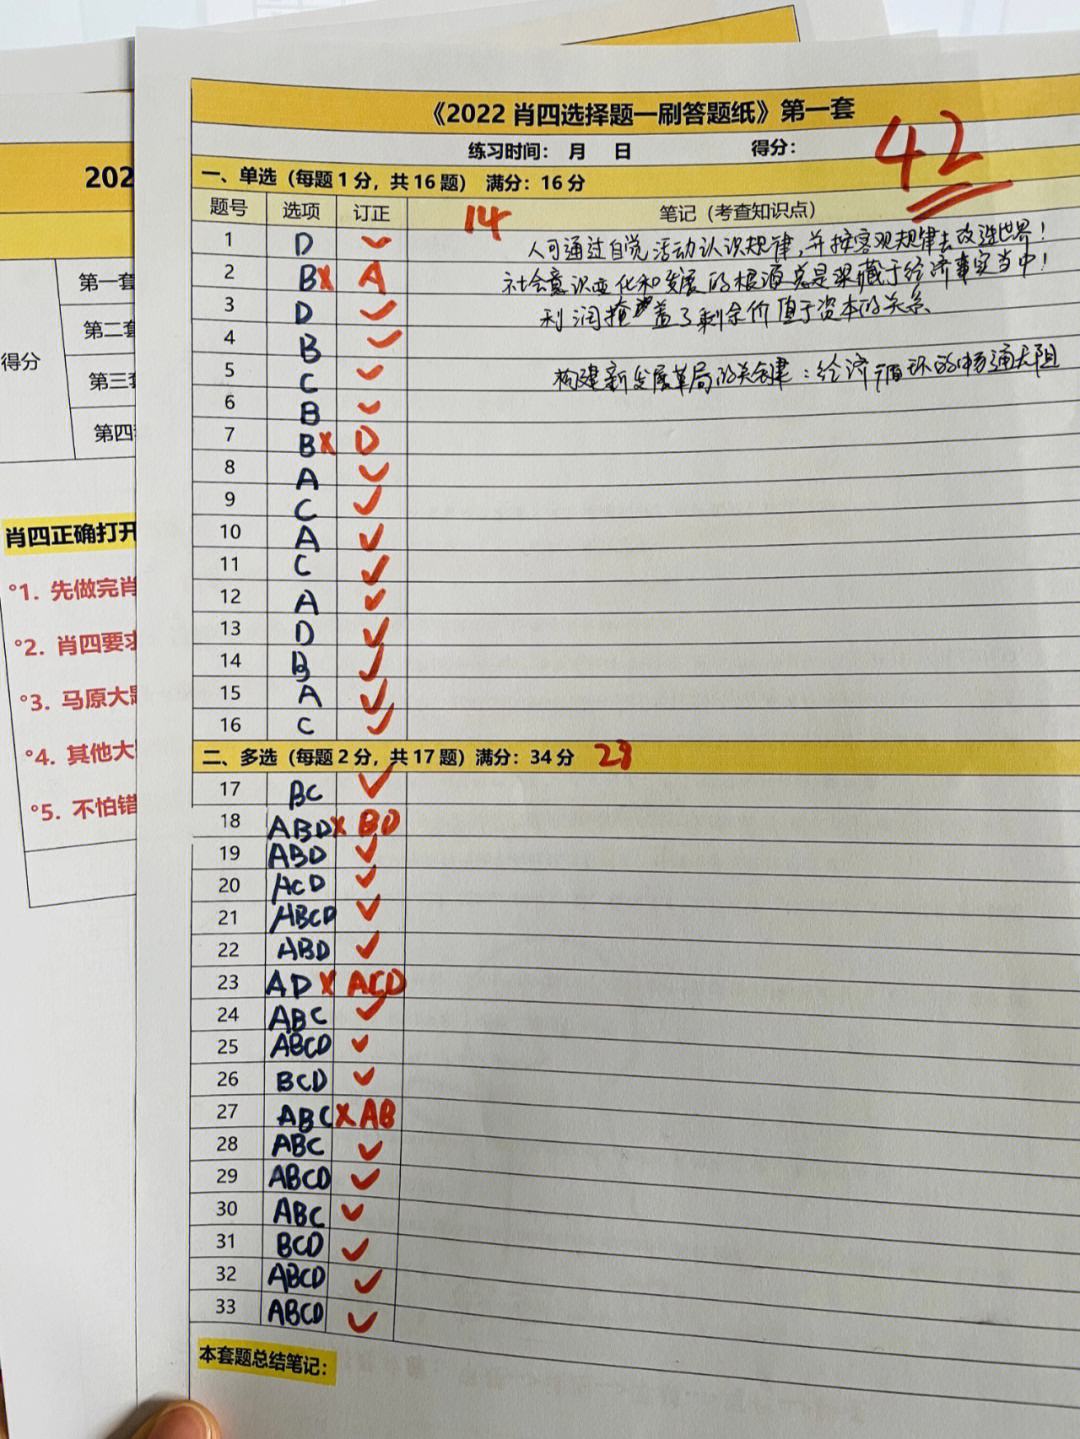 《2022 肖四选择题一刷答题纸》第一套
练习时间： 月 日 得分： 42
一、单选（每题 1 分，共 16 题） 满分：16 分
题号 选项 订正 14 笔记（考查知识点）
1 D ✓ 人可通过自觉活动认识规律，并按客观规律去改造世界！
2 B× A 社会意识变化和发展的根源总是深藏于经济事实当中！
3 D ✓ 利润掩盖了剩余价值于资本的关系
4 B ✓
5 C ✓ 构建新发展革局的关键：经济循环的畅通无阻
6 B ✓
7 B× D
8 A ✓
9 C ✓
10 A ✓
11 C ✓
12 A ✓
13 D ✓
14 B ✓
15 A ✓
16 C ✓
二、多选（每题 2 分，共 17 题）满分：34 分 28
17 BC ✓
18 ABD× BD
19 ABD ✓
20 ACD ✓
21 ABCD ✓
22 ABD ✓
23 AD× ACD
24 ABC ✓
25 ABCD ✓
26 BCD ✓
27 ABC× AB
28 ABC ✓
29 ABCD ✓
30 ABC ✓
31 BCD ✓
32 ABCD ✓
33 ABCD ✓
本套题总结笔记：
202
得分
第一套
第二套
第三套
第四
肖四正确打开
°1. 先做完肖
°2. 肖四要求
°3. 马原大题
°4. 其他大
°5. 不怕错